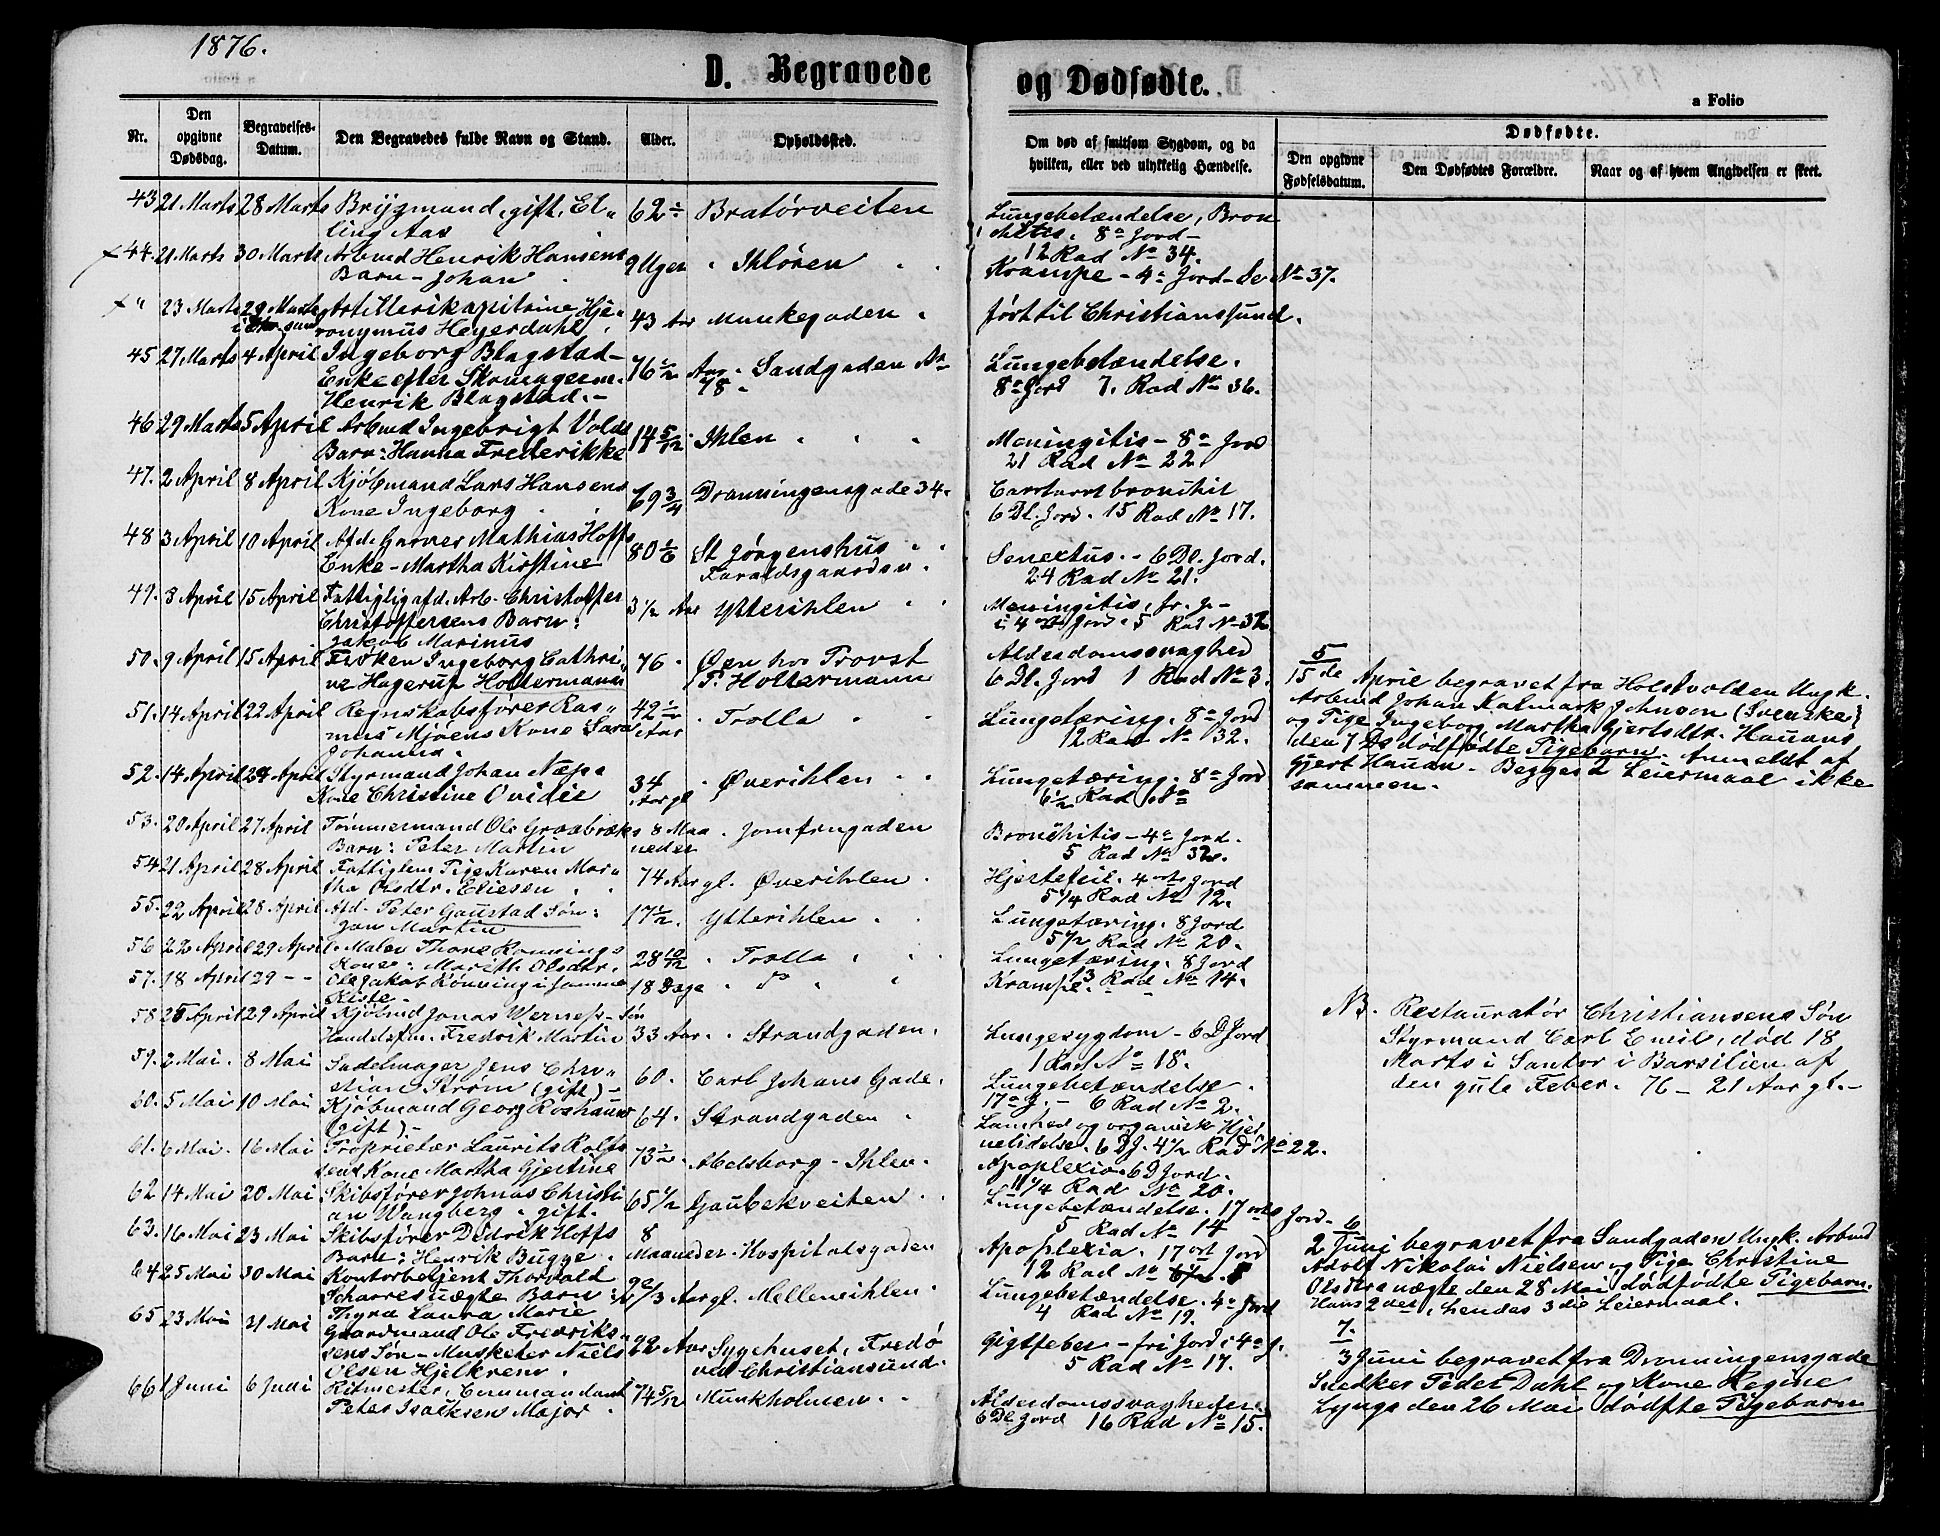 1876.
D. Begravede
og Dødfødte.
a Folio
Nr.
Den opgivne Dødsdag.
Begravelses-Datum.
Den Begravedes fulde Navn og Stand.
Alder.
Opholdssted.
Om død af smitsom Sygdom, og da hvilken, eller ved ulykkelig Hændelse.
Dødfødte.
Den opgivne Fødselsdatum.
Den Dødfødtes Forældre.
Naar og af hvem Angivelsen er skeet.
43 21 Marts 28 Marts Brygmand, gift, El„ 62 ÷ Bratørveiten Lungebetændelse, Bron
ling Aas chitis. 8de Jord –
12 Rad No 34.
44. 21 Marts 30 Marts Arbmd Henrik Hansens 9 Uger „ Ihløren Krampe – 4de Jord – No 37.
Barn – Johan
„ 23 Marts 29 Marts Artillerikapitaine Hje„ 43 Aar Munkegaden „ ført til Christianssund.
ronymus Heyerdahl
45 27 Marts 4 April Ingeborg Blagstad – 76 ½ Aar. Sandgaden No 78 Lungebetændelse.
Enke efter Skomagerm. 8de Jord 7. Rad No 36.
Henrik Blagstad. –
46 29 Marts 5 April Arbmd Ingebrigt Volds 14 5/12 Ihlen Meningitis – 8de Jord
Barn: Hanna Frederikke 21 Rad No 22.
47. 2 April 8 April Kjøbmand Lars Hansens 69 3/4 Dronningensgade 34. bronchit
Kone Ingeborg 6 Dl. Jord. 15 Rad No 17.
48 3 April 10 April Afd. Garver Mathias Hoffs 80 1/6 St Jørgenshus Senectus. – 6 Dl. Jord.
Enke – Martha Kirstine 24 Rad No 21.
49. 8 April 15 April Fattiglig afd. Arb. Christoffer 3 ½ Aar Ytterihlen Meningitis, fr. J. –
Christoffersens Barn: i 4 Jord. 5 Rad No 37
Jakob Marinus
50. 9 April 15 April Frøken Ingeborg Cathri„ 76 Øen hos Provst Alderdomssvaghed
ne Hagerup Holtermann P. Holtermann 6 Dl. Jord 1 Rad No 3.
51. 14 April 22 April Regnskabsfører Ras„ 42 ½ Aar Trolla Lungetæring. 8de Jord
mus Mjøens Kone Sara 12 Rad No 32.
Johanna.
52. 14 April 24 April Styrmand Johan Næss 34 Aar gl. Øverihlen Lungetæring. 8de Jord
Kone Christine Ovidie 6 ½ Rad
53. 20 April 27 April Tømmermand Ole Graabræks 8 Maa Jomfrugaden Bronchitis – 4de Jord.
Barn: Peter Martin neder 5 Rad No
54 21 April 28 April Fattiglem Pige Karen Mar„ 74 Aar gl. Øverihlen. Hjertefeil. 4de Jord
tha Olsdtr. Eliesen 5 ¼ Rad No 12.
55. 22 April 28 April Afd. Peter Gaustad Søn: 17 ½. Ytterihlen Lungetæring. 8 Jord
Jan Martin 5 ½ Rad No 20.
56 22 April 29 April Maler Thore Rønnings 28 10/12 Trolla Lungetæring. 8 Jord
Kone: Marith Olsdtr. 13 Rad No 14.
57. 18 April 29 – – Ole Jakob Rønning i samme 18 Dage Do Krampe.
Kiste
58 25 April 29 April Kjøbmd Jonas Wernes's Søn
Handelsfm. Fredrik Martin 33 Aar. Strandgaden. Lungesygdom – 6 D Jord
1 Rad No 18.
59. 2 Mai. 8 Mai Sadelmager Jens Chri„ 60. Carl Johans Gade. Lungebetændelse
stian Strøm (gift) – 17de J. – 6 Rad No 2.
60. 5 Mai 10 Mai Kjøbmand Georg Roshauw 64. Strandgaden Lamhed og organisk Hjer„
(gift) – nelidelse. 6 DJ. 4 ½ Rad No 22.
61. 6 Mai. 16 Mai Proprietær Laurits Rolf„ 73 ½. Abelsborg – Ihlen. Apoplexia. 6 D Jord.
sens Kone Martha Gjertine 11 ¼ Rad No 20.
62 14 Mai 20 Mai Skibsfører Johnas Christi 65 ½ Gaubekveiten Lungebetændelse. 17 Jord –
an Wangberg, gift. 5 Rad No 14
63. 16 Mai 23 Mai Skibsfører Didrik Hoffs 8 Apoplexia. 17 Jord
Barn: Henrik Bugge. Maaneder. Hospitalsgaden 12 Rad No
64 25 Mai 30 Mai Kontorbetjent Thorvald Mellemihlen. Lungebetændelse. 4de Jord
Scharres uægte Barn: Aar gl. 4 Rad No 19.
Thyra Laura Marie
65 23 Mai 31 Mai Gaardmand Ole Fredrik„ 22 Aar Sygehuset, Fredø Gigtfeber – fri Jord i 4de J.
sens Søn – Musketer Niels ved Christiansund. 5 Rad No 17.
Olsen Hjelkrem.
66 1 Juni 6 Juni Ritmester, Commandant 74 5/12 Munkholmen Alderdomssvagheter
Peter Isachsen Major 6 Dl Jord 16 Rad No 15.
5
15de April begravet fra Holstvolden Ungk.
Arbmd Johan Kalmark Johnson (Svenske)
og Pige Ingeborg Martha Gjertsdtr. Hauans
den 7 Ds dødfødte Pigebarn. Anmeldt af
Gjert Hauan. Begges 2 Leiermaal ikke
sammen.
NB. Restauratør Christiansens Søn
Styrmand Carl Emil, død 18
Marts i Santos i Barsilien af
den gule Feber. 76 – 21 Aar gl. –
6
2 Juni begravet fra Sandgaden Ungk. Arbmd
Adolf Nikolai Nielsen og Pige Christine
Olsdtr uægte den 28 Mai dødfødte Pigebarn.
Hans 2det, hendes 3die Leiermaal.
7.
3 Juni begravet fra Dronningensgade
Snedker Peder Dahl og Kone Regine
Lyngs den 26 Mai dødfte Pigebarn